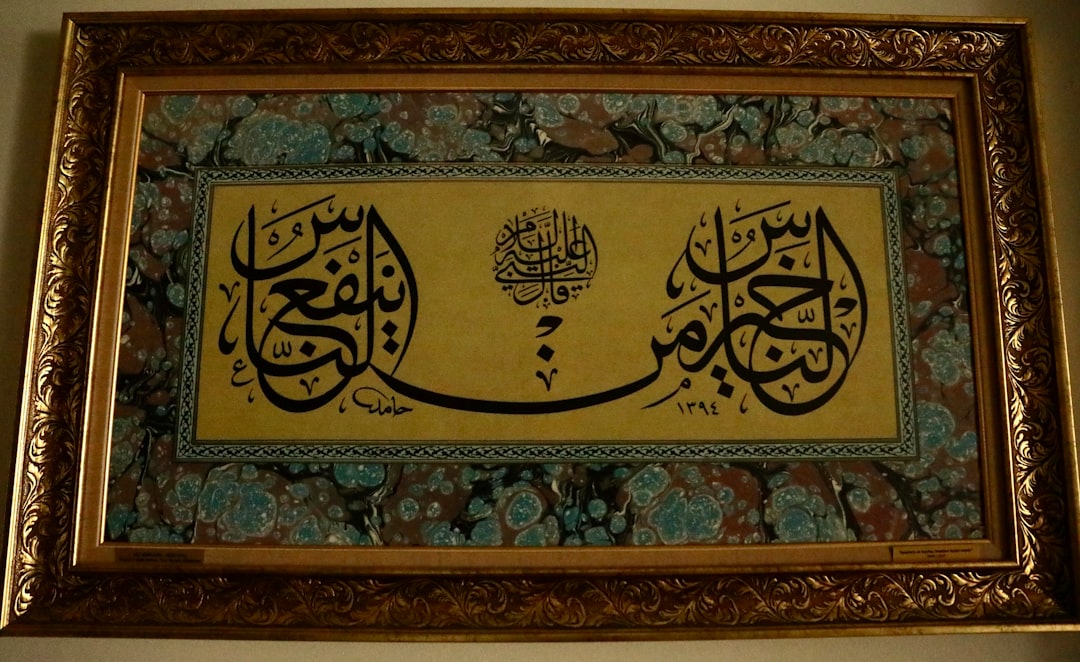 قال النبي عليه السلام
خير الناس من ينفع الناس
حامد ١٣٩٤